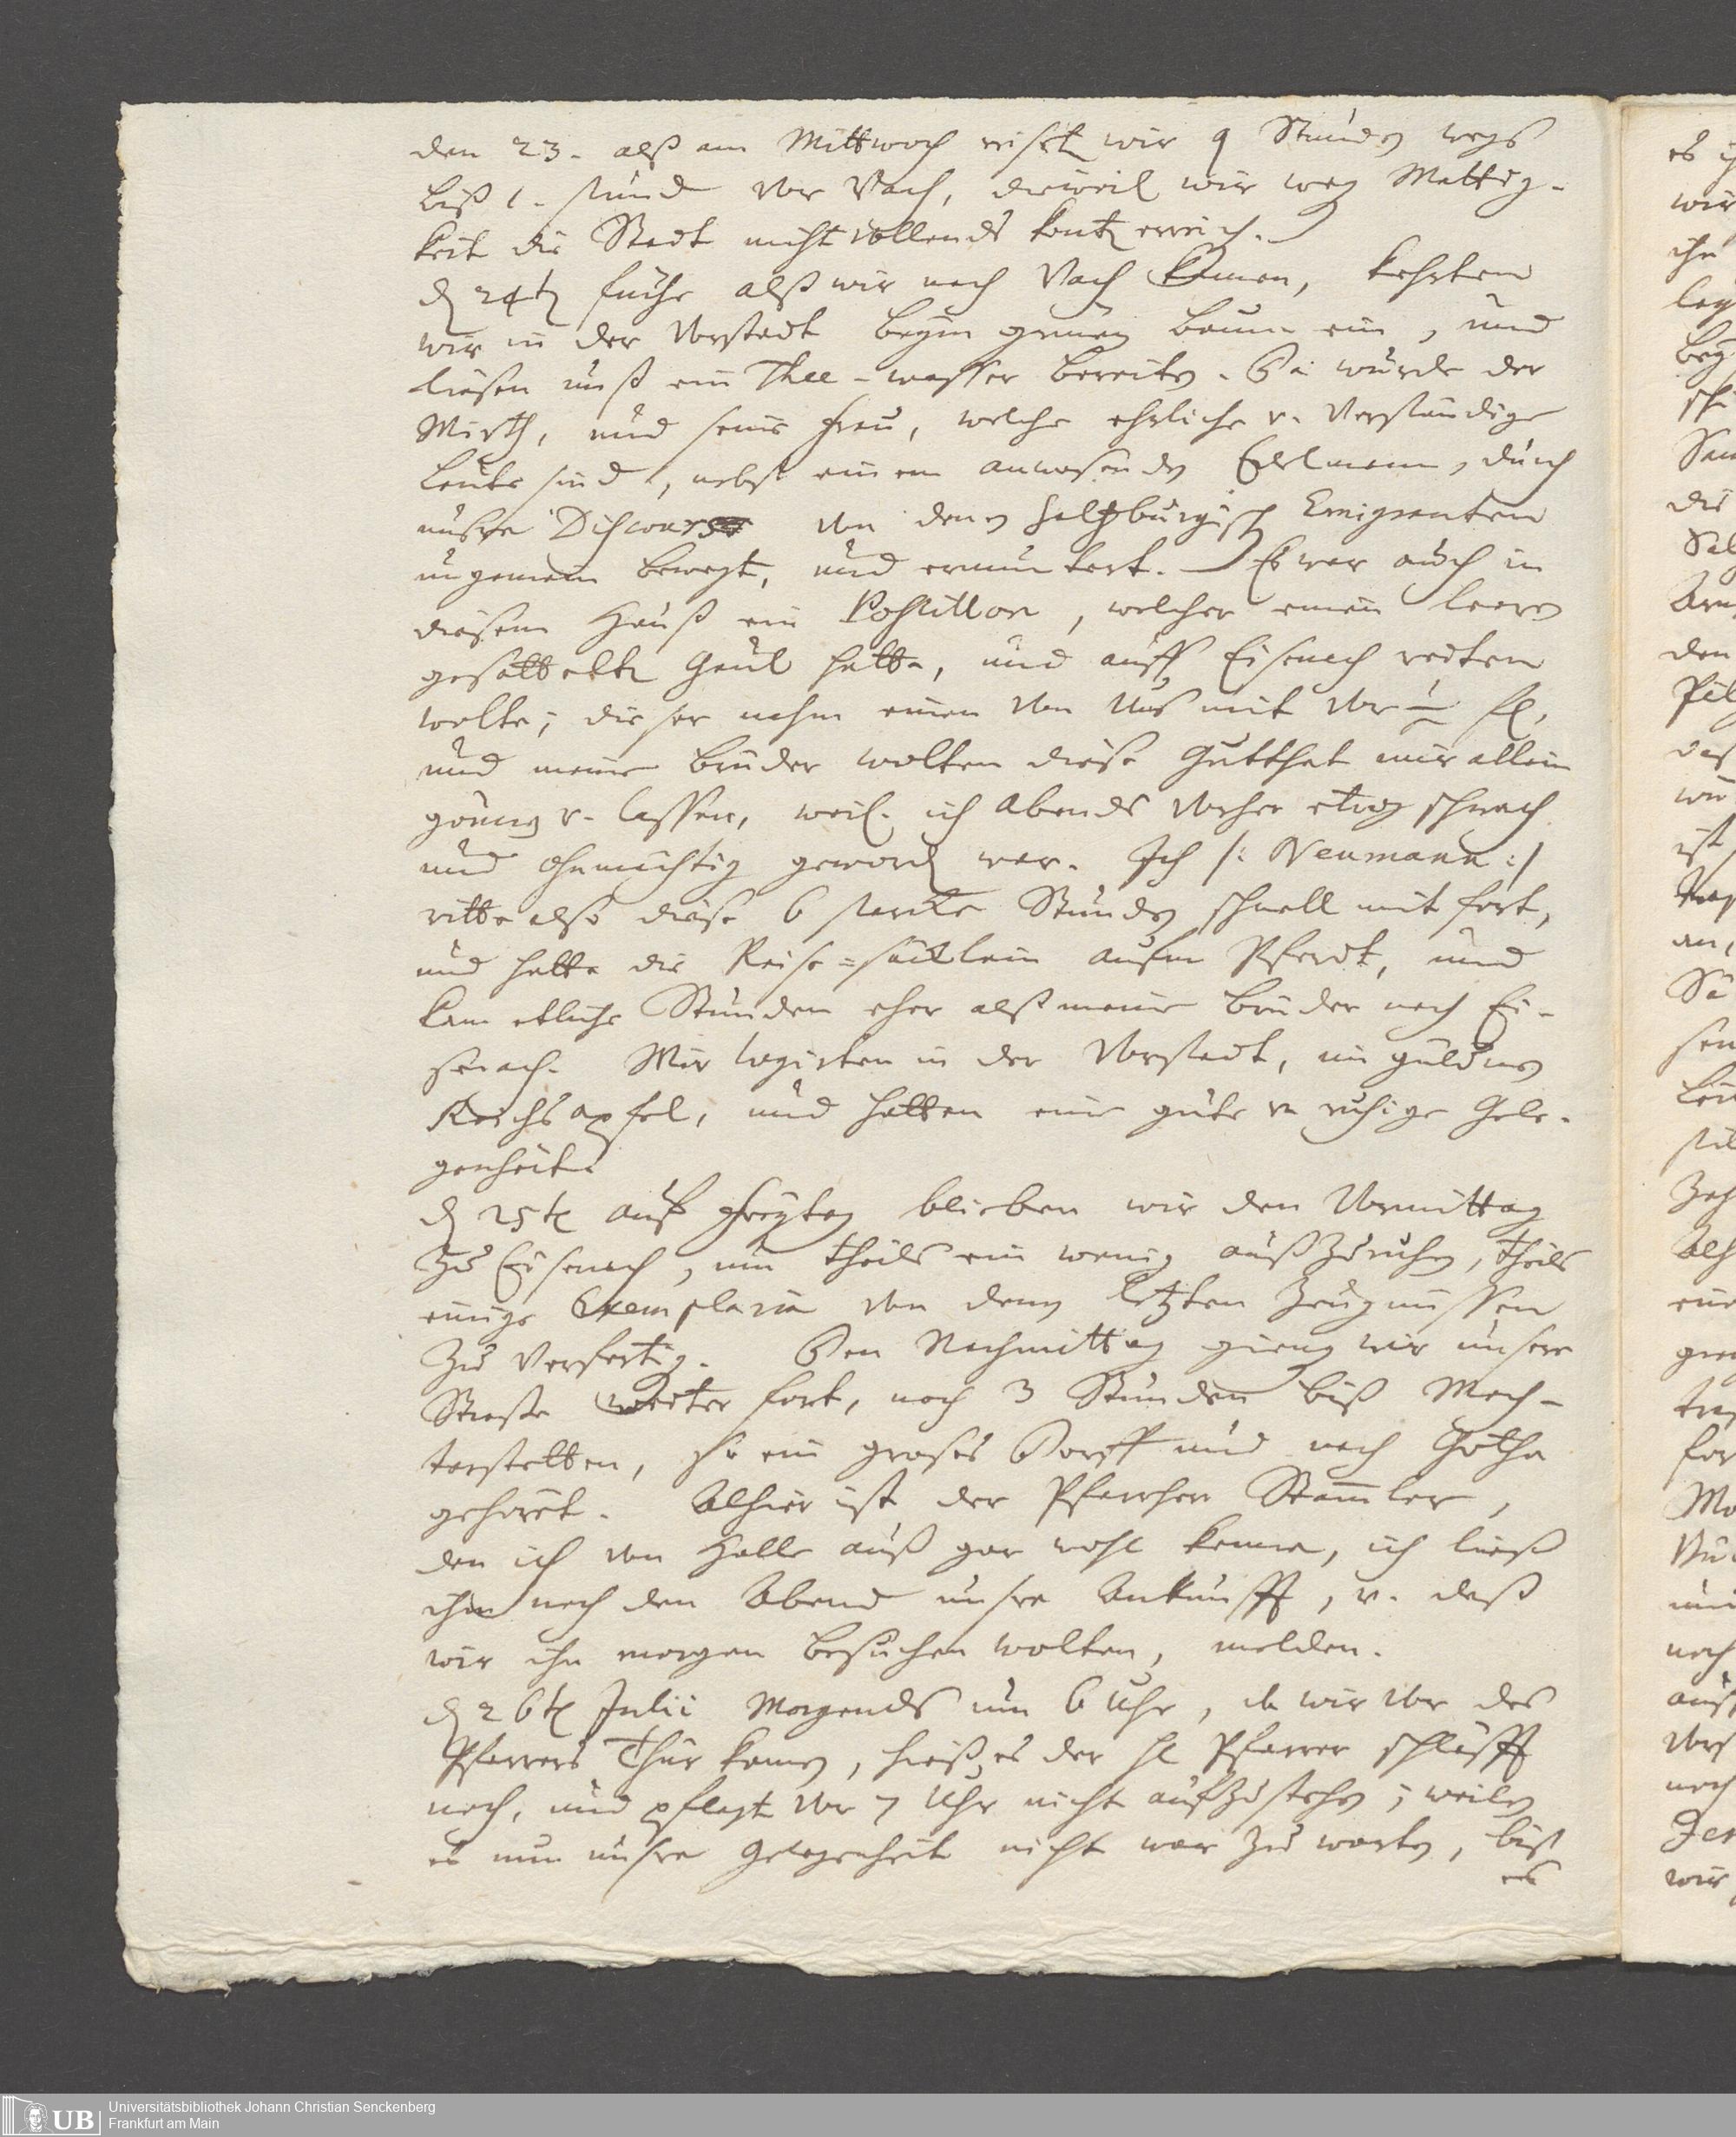 den 23. alß am Mittwoch reiset. wir 9 Stunden wegs
biß 1. stund vor Vach, dieweil wir weg. Mattig-
keit die Stadt nicht vollends kont. erreich.
d. 24t. frühe alß wir nach Vach kamen, kehrten
wir in der Vorstadt beym grünen baum ein, und
liesen unß ein Thee-wasser bereiten. Da wurde der
Wirth, und seine Frau, welche ehrliche u. verständige
Leute sind, nebst einem anwesenden Edelmann, durch
unsre Discours von denen saltzburgisch. Emigranten
ungemein bewegt, und ermuntert. Es war auch in
diesem Hauß ein Postillon, welcher einen leeren
gesattelt. Gaul hatte, und auff Eisenach reiten
wolte; dieser nahm einen von Uns mit vor fl.
und meine brüder wolten diese Gutthat mir allein
gönnen u. lassen, weil ich Abends vorher etwas schwach
und ohnmächtig geword. war. Ich /: Neumann :/
ritte also diese 6 starcke Stunden schnell mit fort,
und hatte die Reise=säcklein aufm Pferdt, und
kam etliche Stunden eher alß meine brüder nach Ei-
senach. Wir logirten in der Vorstadt, im güldnen
Reichsapfel, und hatten eine gute u. ruhige Gele-
genheit.
d. 25t. auf Freytag blieben wir den Vormittag
zu Eisenach, um theils ein wenig außzuruhen, theils
einige Exemplaria von denen letzten Zeugnissen
zu verfertig. Den Nachmittag gieng. wir unsere
Strase weiter fort, noch 3 Stunden biß Mech-
terstetten, so ein groses Dorff und nach Gotha
gehöret. Alhier ist der Pfarrherr Stammler,
den ich von Halle auß gar wohl kenne, ich ließ
ihm noch den Abend unsre Ankunfft, u. daß
wir ihn morgen besuchen wolten, melden.
d. 26t. Julii Morgends um 6 Uhr, da wir vor des
Pfarrers Thür kamen, hieß es der H. Pfarrer schläfft
noch, und pflegt vor 7 Uhr nicht aufzustehen; weilen
es nun unsre Gelegenheit nicht war zu warten, biß
es
Universitätsbibliothek Johann Christian Senckenberg
Frankfurt am Main
UB